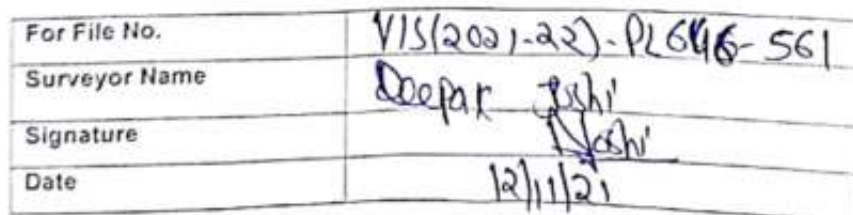 For File No. VIS(2021-22)-PL646-561
Surveyor Name Deepak Joshi
Signature DJoshi
Date 12/11/21